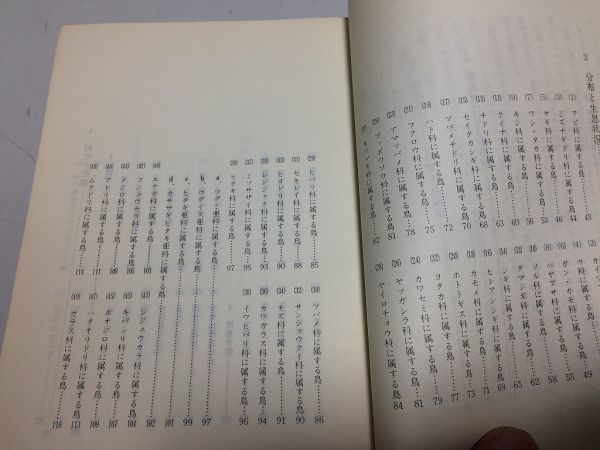 3 分布と生息状況
(1) アビ科に属する鳥……43
(3) ミズナギドリ科に属する鳥……44
(4) ウ科に属する鳥
(5) サギ科に属する鳥……46
(6) ガン・カモ科に属する鳥……49
(7) ワシ・タカ科に属する鳥……53
(8) ハヤブサ科に属する鳥……55
(9) キジ科に属する鳥……56
(10) ツル科に属する鳥……58
(11) クイナ科に属する鳥……60
(12) タマシギ科に属する鳥……62
(13) チドリ科に属する鳥……63
(14) シギ科に属する鳥……65
(15) セイタカシギ科に属する鳥……68
(16) ヒレアシシギ科に属する鳥……69
(17) ツバメチドリ科に属する鳥……70
(18) カモメ科に属する鳥……71
(19) ハト科に属する鳥……72
(20) ホトトギス科に属する鳥……73
(21) フクロウ科に属する鳥……75
(22) ヨタカ科に属する鳥……77
(23) アマツバメ科に属する鳥……78
(24) カワセミ科に属する鳥……79
(25) ブッポウソウ科に属する鳥……81
(26) ヤツガシラ科に属する鳥……81
(27) キツツキ科に属する鳥……82
(28) ヤイロチョウ科に属する鳥……84
(29) ヒバリ科に属する鳥……85
(30) ツバメ科に属する鳥……86
(31) セキレイ科に属する鳥……88
(32) サンショウクイ科に属する鳥……90
(33) ヒヨドリ科に属する鳥……90
(34) モズ科に属する鳥……91
(35) レンジャク科に属する鳥……93
(36) カワガラス科に属する鳥……94
(37) ミソサザイ科に属する鳥……95
(38) イワヒバリ科に属する鳥……96
(39) ヒタキ科に属する鳥……97
a、ツグミ亜科に属する鳥……97
b、ウグイス亜科に属する鳥……99
c、ヒタキ亜科に属する鳥……101
d、カササギヒタキ亜科に属する鳥……102
(40) エナガ科に属する鳥……103
(41) シジュウカラ科に属する鳥……104
(42) ゴジュウカラ科に属する鳥……105
(43) キバシリ科に属する鳥……107
(44) メジロ科に属する鳥……108
(45) ホオジロ科に属する鳥……109
(46) アトリ科に属する鳥……111
(47) ハタオリドリ科に属する鳥……113
(48) ムクドリ科に属する鳥……111
(49) カラス科に属する鳥……116